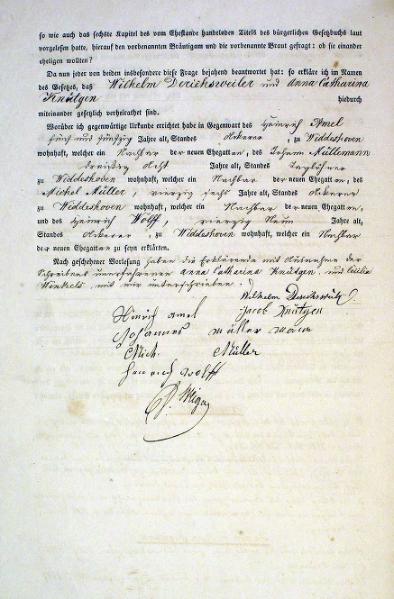 so wie auch das sechste Kapitel des vom Ehestande handelnden Titels des bürgerlichen Gesetzbuchs laut
vorgelesen hatte, hierauf den vorbenannten Bräutigam und die vorbenannte Braut gefragt: ob sie einander
ehelichen wollten?
Da nun jeder von beiden insbesondere diese Frage bejahend beantwortet hat: so erkläre ich im Namen
des Gesetzes, daß Wilhelm Derichsweiler und Anna Catharina
Knützgen hiedurch
miteinander gesetzlich verheirathet sind.
Worüber ich gegenwärtige Urkunde errichtet habe in Gegenwart des Heinrich Amel
fünf und fünfzig Jahre alt, Standes Ackerer, zu Widdeshoven
wohnhaft, welcher ein Nachbar der neuen Ehegatten, des Johann Müllemann
dreißig Acht Jahre alt, Standes Taglöhner
zu Widdeshoven wohnhaft, welcher ein Nachbar der neuen Ehegatten, des
Michel Müller, vierzig sechs Jahre alt, Standes Ackerer
zu Widdeshoven wohnhaft, welcher ein Nachbar der neuen Ehegatten,
und des Heinrich Wolff, vierzig Neun Jahre alt,
Standes Ackerer, zu Widdeshoven wohnhaft, welcher ein Nachbar
der neuen Ehegatten zu seyn erklärten.
Nach geschehener Vorlesung haben die Erklärende mit Ausnahme der
Schreibens unerfahrenen Anna Catharina Knützgen, und Cäcilia
Winkels, mit mir unterschrieben.
Wilhelm Derichs
Hinrich Amel Jacob Knützgen
Johannes müller mann
Mich. Müller
Henrich Wolff